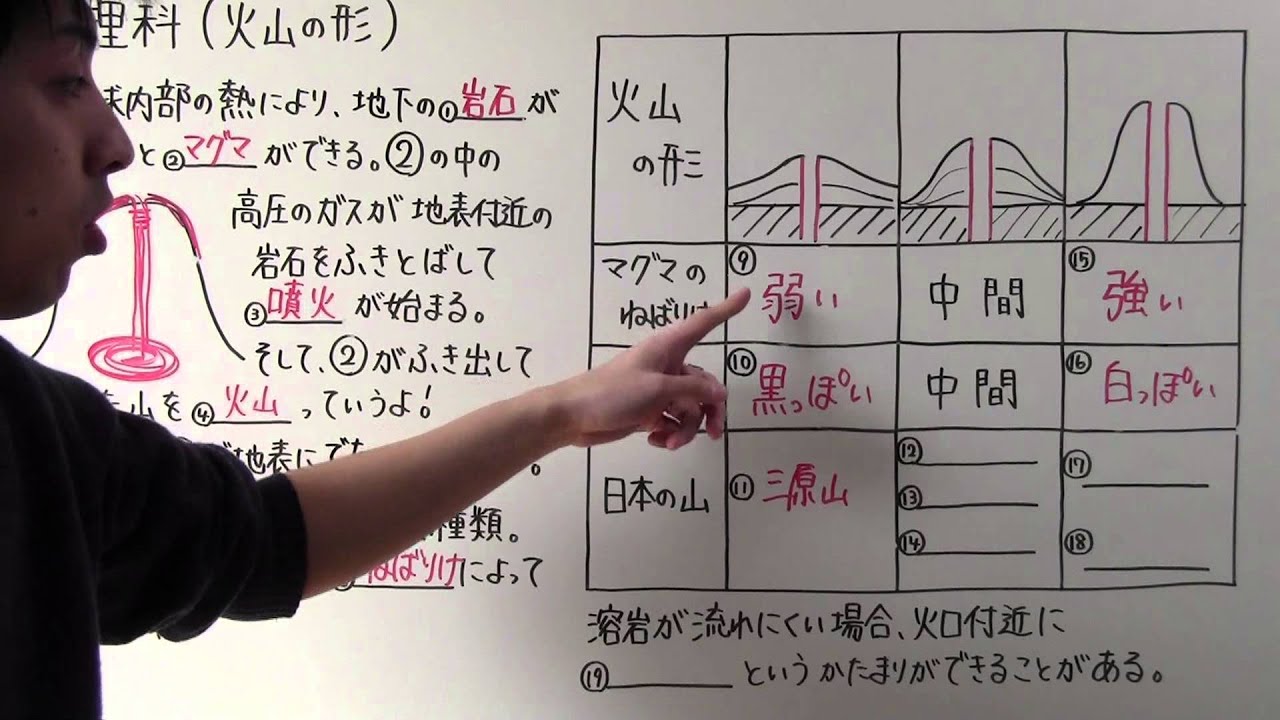 理科(火山の形)
球内部の熱により、地下の①岩石が
と②マグマができる。②の中の
高圧のガスが地表付近の
岩石をふきとばして
③噴火が始まる。
そして、②がふき出して
山を④火山っていうよ!
地表にで
種類。
ねばりけによって
火山の形
マグマのねばりけ
⑨弱い
中間
⑮強い
⑩黒っぽい
中間
⑯白っぽい
日本の山
⑪三原山
⑫
⑬
⑭
⑰
⑱
溶岩が流れにくい場合、火口付近に
⑲というかたまりができることがある。